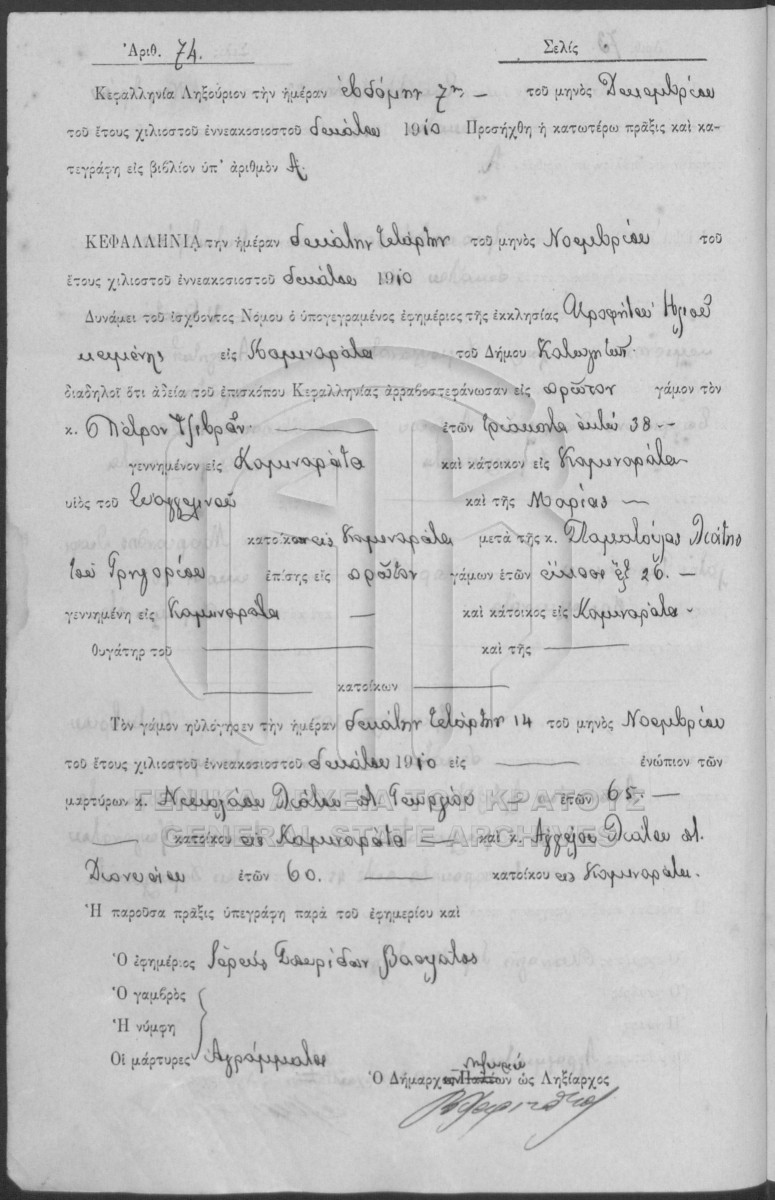 Ἀριθ. 74. Σελίς
Κεφαλληνία Ληξούριον τὴν ἡμέραν ἑβδόμην 7ην — τοῦ μηνὸς Δεκεμβρίου
τοῦ ἔτους χιλιοστοῦ ἐννεακοσιοστοῦ δεκάτου 1910 Προσήχθη ἡ κατωτέρω πρᾶξις καὶ κα-
τεγράφη εἰς βιβλίον ὑπ' ἀριθμὸν Α.
ΚΕΦΑΛΛΗΝΙΑ την ἡμέραν δεκάτην τετάρτην τοῦ μηνὸς Νοεμβρίου τοῦ
ἔτους χιλιοστοῦ ἐννεακοσιοστοῦ δεκάτου 1910
Δυνάμει τοῦ ἰσχύοντος Νόμου ὁ ὑπογεγραμένος ἐφημέριος τῆς ἐκκλησίας Προφήτου Ἠλιοῦ
κειμένης εἰς Καμιναράτα τοῦ Δήμου
διαδηλοῖ ὅτι ἀδεία τοῦ ἐπισκόπου Κεφαλληνίας ἀρραβοστεφάνωσαν εἰς πρῶτον γάμον τὸν
κ. Πέτρον — ἐτῶν τριάκοντα ὀκτώ 38 —
γεννημένον εἰς Καμιναράτα καὶ κάτοικον εἰς Καμιναράτα
υἱὸς τοῦ Εὐαγγελινοῦ καὶ τῆς Μαρίας —
κατοίκων εἰς Καμιναράτα μετὰ τῆς κ. Σταματούλας
τοῦ Γρηγορίου ἐπίσης εἰς πρῶτον γάμων ἐτῶν εἴκοσι ἕξ 26. —
γεννημένη εἰς Καμιναράτα — καὶ κάτοικος εἰς Καμιναράτα
θυγάτηρ τοῦ — καὶ τῆς —
— κατοίκων —
Τὸν γάμον ηὐλόγησεν τὴν ἡμέραν δεκάτην τετάρτην 14 τοῦ μηνὸς Νοεμβρίου
τοῦ ἔτους χιλιοστοῦ ἐννεακοσιοστοῦ δεκάτου 1910 εἰς — ἐνώπιον τῶν
μαρτύρων κ. Νικολάου Γεωργίου — ἐτῶν 65. —
ΓΕΝΙΚΑ ΑΡΧΕΙΑ ΤΟΥ ΚΡΑΤΟΥΣ
GENERAL STATE ARCHIVES
— κατοίκου εἰς Καμιναράτα — καὶ κ. Ἀγγέλου
Διονυσίου ἐτῶν 60. — κατοίκου εἰς Καμιναράτα.
Ἡ παροῦσα πρᾶξις ὑπεγράφη παρὰ τοῦ ἐφημερίου καὶ
Ὁ ἐφημέριος Ἱερεὺς Σπυρίδων
Ὁ γαμβρὸς
Ἡ νύμφη
Οἱ μάρτυρες Ἀγράμματοι
Ὁ Δήμαρχος ὡς Ληξίαρχος